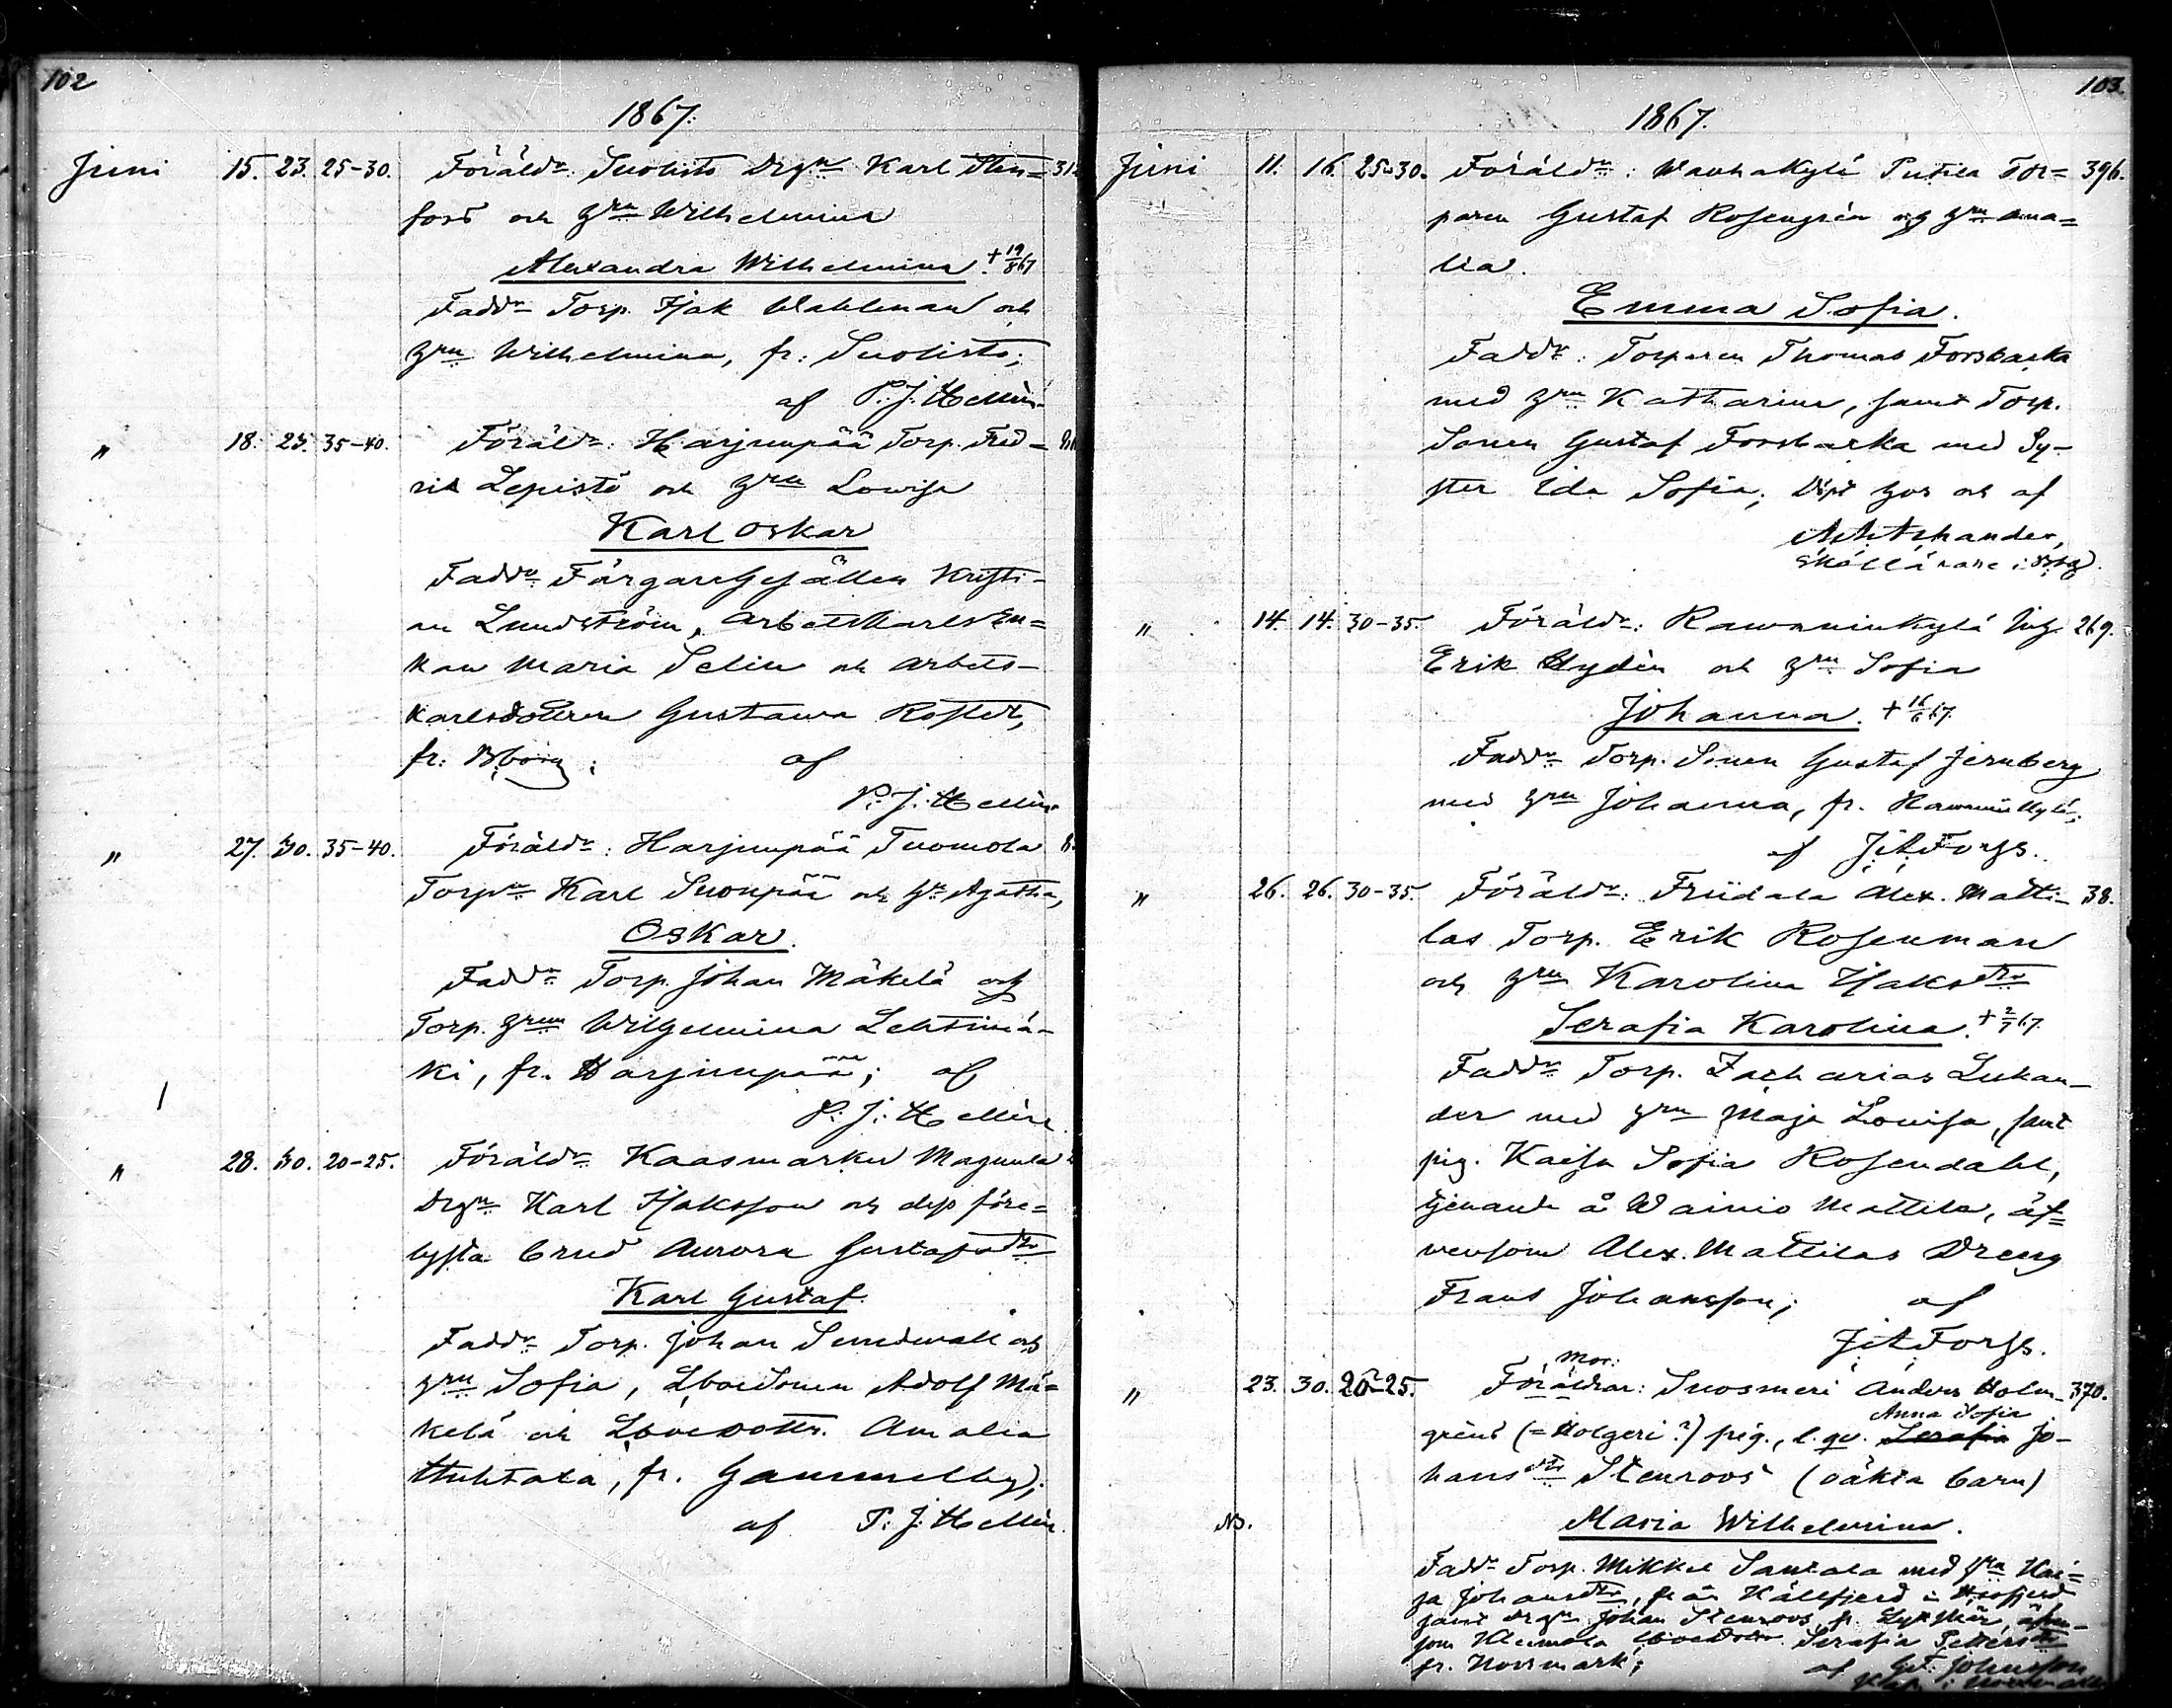 102
1867.
Juni 15. 23. 25-30. Föräldr. Suolisto Drgn Karl Sten= 31
fors och hru Wilhelmina
Alexandra Wilhelmina. + 19/8 67
Faddr Torp. Isak Wahlman och
hru Wilhelmina, fr: Suolisto;
af P. J. Hellén
" 18. 23. 35-40. Föräldr: Harjunpää Torp. Fred-
rik Lepistö och hru Lowisa
Karl Oskar
Faddr Färgaregesällen Kristi-
an Lundström, Arbetskarlsen=
kan Maria Selin och arbets-
karlsdottren Gustawa Rostedt,
fr: Bborg; af
P. J. Hellén
" 27. 30. 35-40. Föräldr: Harjunpää Tuomola
Torpn Karl Suonpää och h. Agatha,
Oskar.
Faddr Torp. Johan Mäkelä och
Torp. hrun Wilhelmina Lehtimä-
ki, fr. Harjunpää; af
P. J. Hellén
" 28. 30. 20-25. Föräldr Kaasmarku Magnula
Drgn Karl Isaksson och dess före=
lysta brud Aurora Gustafsdtr
Karl Gustaf.
Faddr Torp. Johan Sundwall och
hru Sofia, Lboesonen Adolf Mä=
kelä och Lboedottr. Amalia
Huhtala, fr. Gammelby;
af P. J. Hellén.
103.
1867.
Juni 11. 16. 25-30. Föräldr: Wanhakylä Putila Tor= 396.
paren Gustaf Rosengrén och hru Ama=
lia.
Emma Sofia.
Faddr: Torparen Thomas Forsbacka
med hru Katharina, samt Torp.
Sonen Gustaf Forsbacka med Sy-
ster Ida Sofia; Döpt hos och af
Skollärare i
" 14. 14. 30-35. Föräldr: Rawaninkylä Inh. 269.
Erik Hydén och hru Sofia
Johanna. + 16/6 67.
Faddr Torp. Sonen Gustaf Jernberg
med hru Johanna, fr. Rawaninkylä;
af J A Forss.
" 26. 26. 30-35. Föräldr: Friidala Alex. Matti- 38.
las Torp. Erik Rosenman
och hru Karolina Isaksdtr
Serafia Karolina. + 2/7 67.
Faddr Torp. Zacharias Lukan-
der med hru Maja Lowisa, samt
pig. Kaisa Sofia Rosendahl,
tjenande å Wainio Mattila, äf=
wensom Alex. Mattilas Dreng
Frans Johansson; af
J A Forss.
Mor:
" 23. 30. 20-25. Föräldrar: Suosmeri Anders Holm- 370.
Anna Sofia
gréns (= Holgeri?) pig., l. qv. Serafia Jo-
hansdtr Stenroos (oäkta barn)
NB. Maria Wilhelmina.
Faddr Torp. Mikkel Santala med hru Kai=
sa Johansdtr, från Källfjerd i
samt drgn Johan Stenroos fr. äfwen-
som Klemola Serafia Pettersdtr
fr. Norrmark;
af Gst. Johnsson